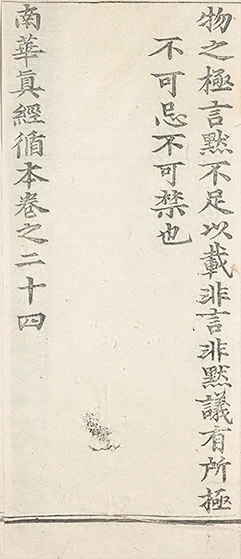 物之極言黙不足以載非言非黙議有所極
不可忌不可禁也
南華眞經循本卷之二十四